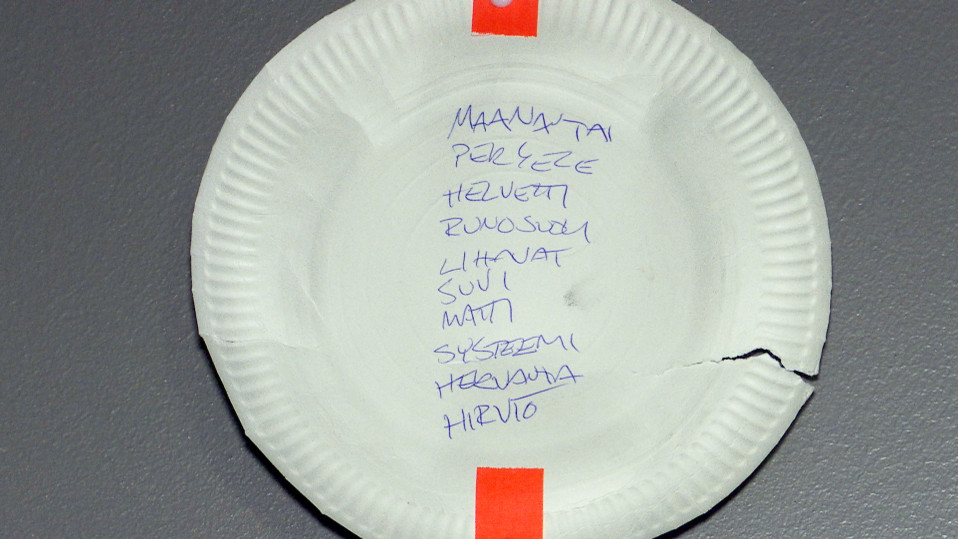 MAANANTAI
PERKELE
HELVETTI
RUNOSUONI
LIHAVAT
SUVI
MATTI
SYSTEEMI
HIRVIÖ